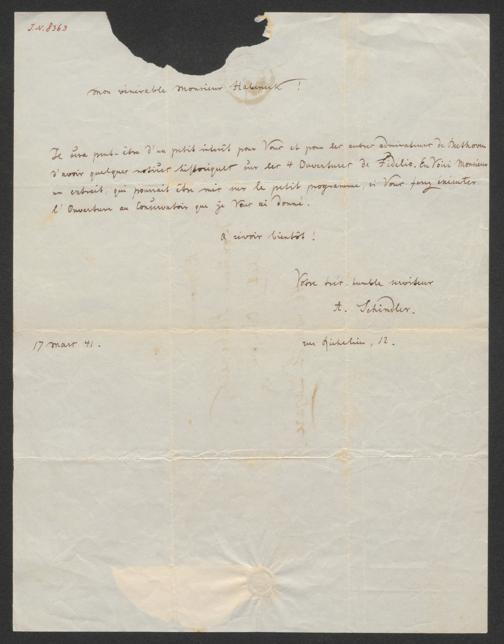 I.N. 8363
Mon vénérable Monsieur Habeneck !
Il sera peut-être d'un petit intérêt pour Vous et pour les autres admirateurs de Beethoven
d'avoir quelques notices historiques sur les 4 Ouvertures de Fidelio. En Voici Monsieur
un extrait, qui pourait être mis sur le petit programme, si Vous ferez exécuter
l'Ouverture au Conservatoir que je Vous ai donné.
à révoir bientôt !
Votre très-humble serviteur
A. Schindler.
17 mars 41.
rue Richelieu, 12.